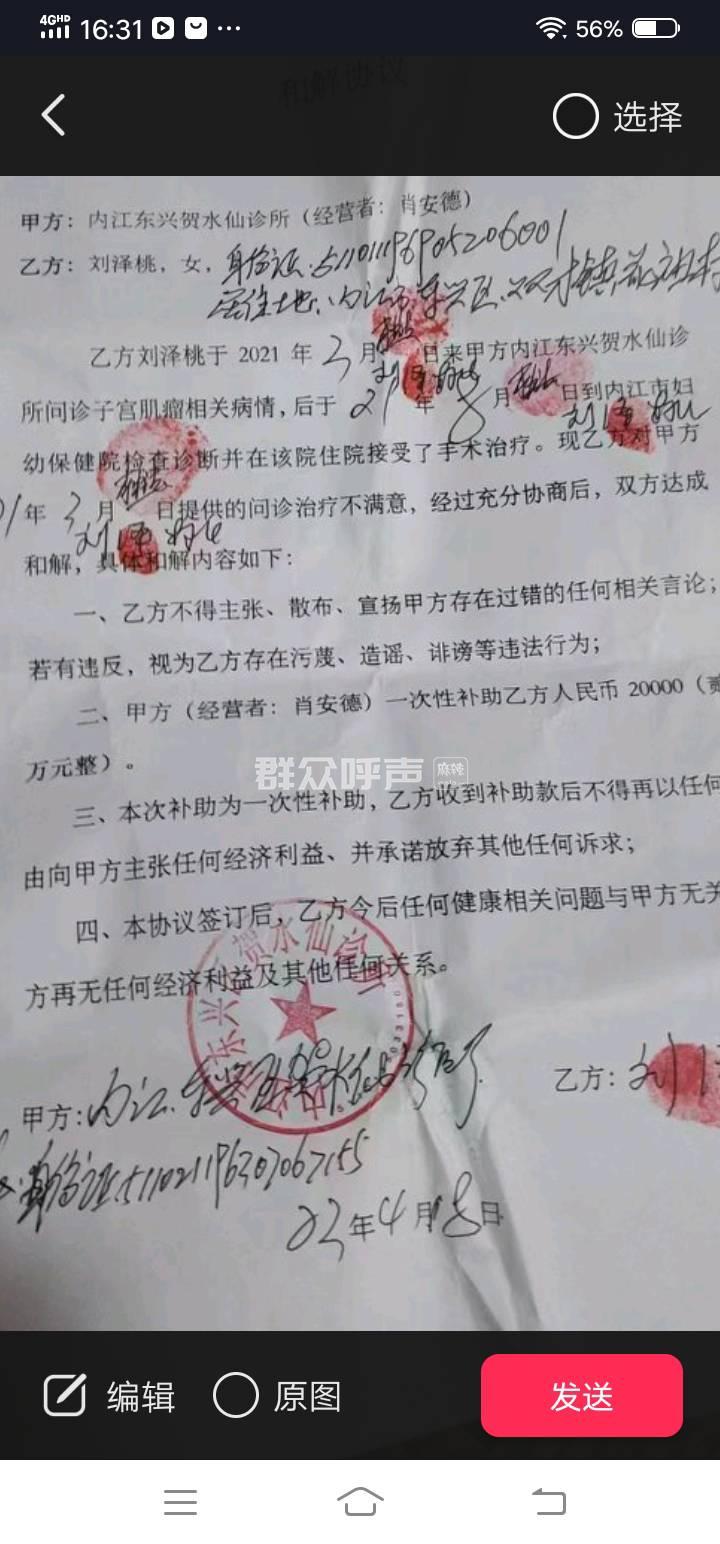 4GHD 16:31 ··· 56%
和解协议
选择
甲方：内江东兴贺水仙诊所（经营者：肖安德）
乙方：刘泽桃，女，身份证：511011196905206001
居住土地：内江市东兴区双才镇
乙方刘泽桃于 2021 年 3 月 日来甲方内江东兴贺水仙诊
所问诊子宫肌瘤相关病情，后于 21 年 8 月 日到内江市妇
幼保健院检查诊断并在该院住院接受了手术治疗。现乙方对甲方
年 3 月 日提供的问诊治疗不满意，经过充分协商后，双方达成
和解，具体和解内容如下：
一、乙方不得主张、散布、宣扬甲方存在过错的任何相关言论；
若有违反，视为乙方存在污蔑、造谣、诽谤等违法行为；
二、甲方（经营者：肖安德）一次性补助乙方人民币 20000（贰
万元整）。
群众呼声 麻辣
三、本次补助为一次性补助，乙方收到补助款后不得再以任何
由向甲方主张任何经济利益、并承诺放弃其他任何诉求；
四、本协议签订后，乙方今后任何健康相关问题与甲方无关
方再无任何经济利益及其他任何关系。
甲方：内江东兴区贺水仙诊所
乙方：刘
身份证：511021196307067155
23年4月8日
编辑 原图 发送